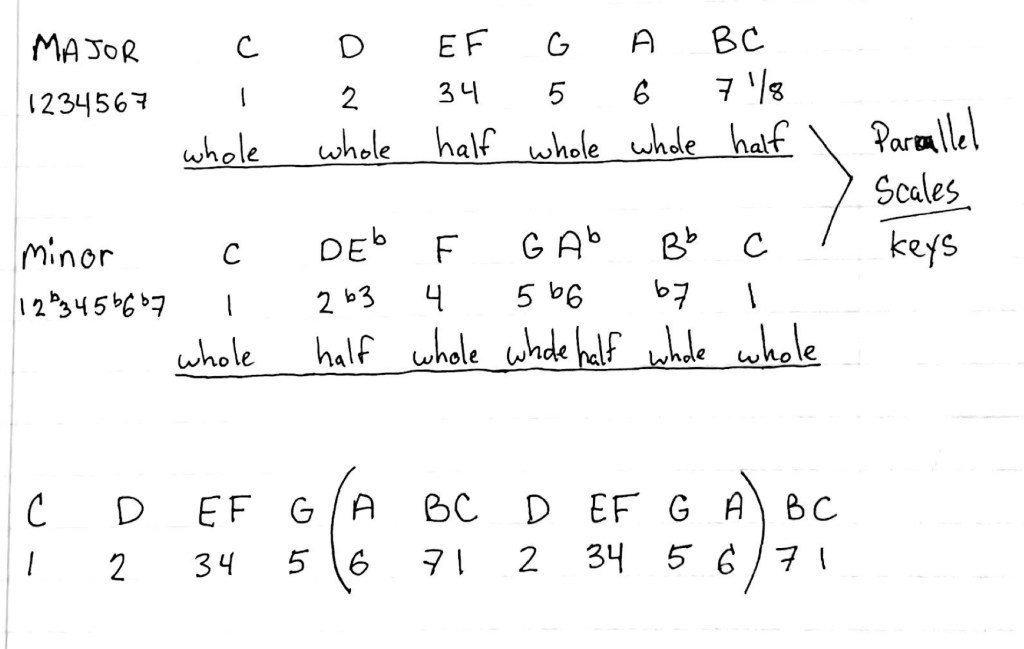 MAJOR C D EF G A BC
1234567 1 2 34 5 6 7 1/8
whole whole half whole whole half
Parallel
Scales
keys
minor C DEb F G Ab Bb C
12b345b6b7 1 2 b3 4 5 b6 b7 1
whole half whole whole half whole whole
C D EF G (A BC D EF G A) BC
1 2 34 5 (6 71 2 34 5 6) 71